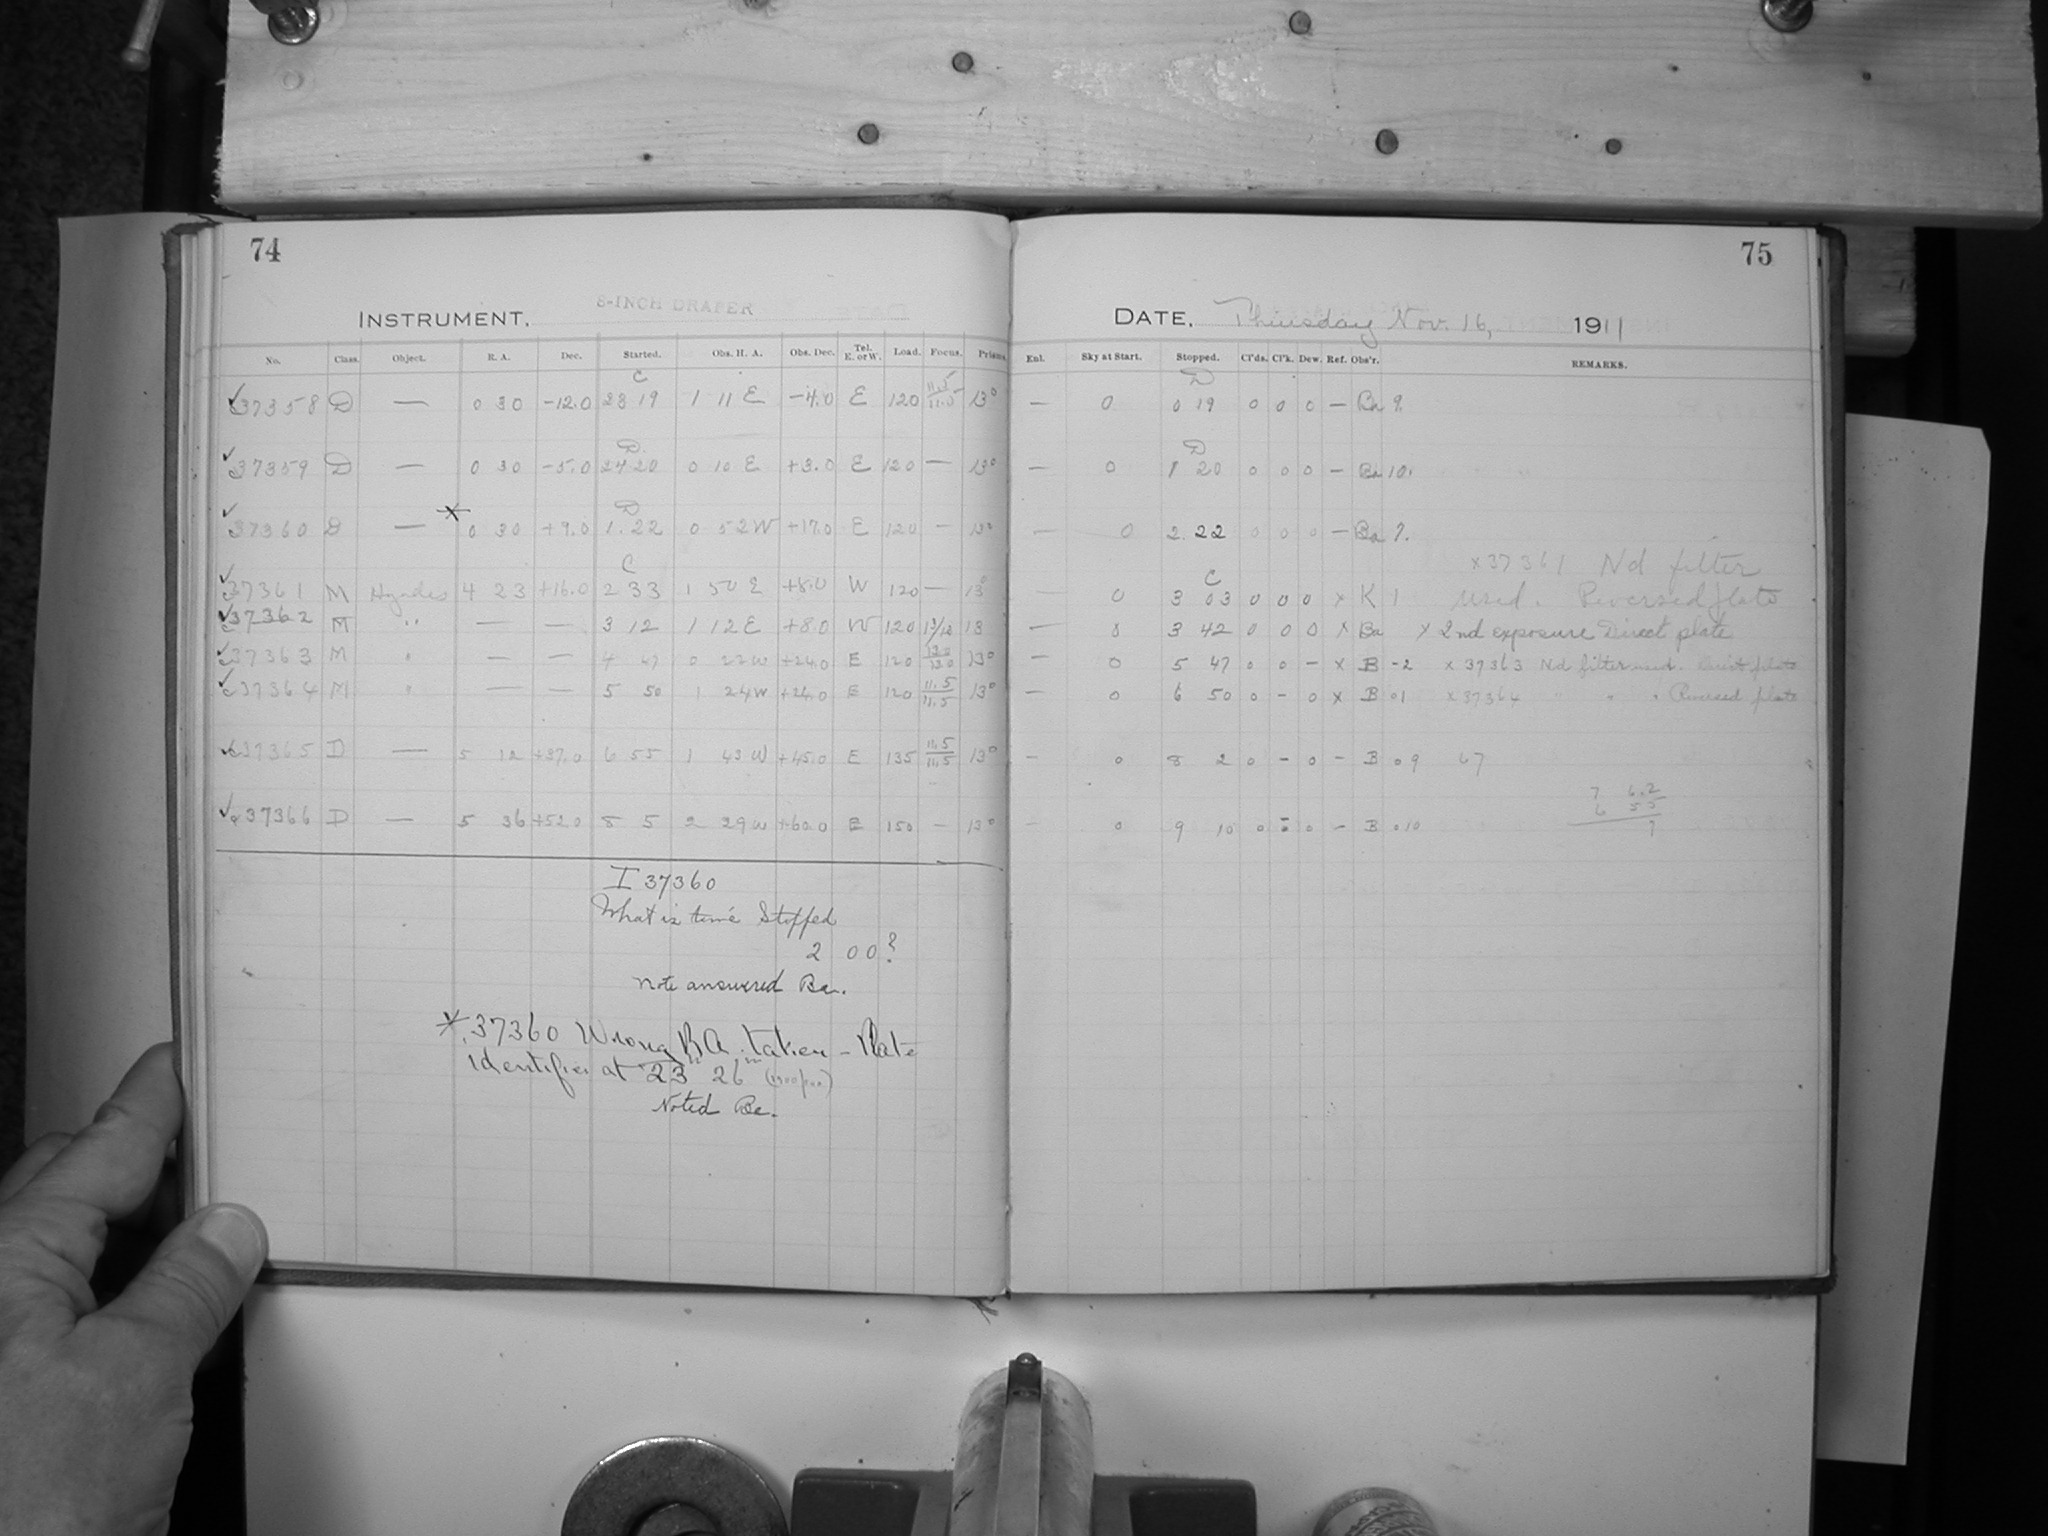 74
INSTRUMENT. 8-INCH DRAPER
No. Class. Object. R. A. Dec. Started. Obs. H. A. Obs. Dec. Tel. E. or W. Load. Focus. Prism.
C
37358 D — 0 30 -12.0 23 19 1 11 E -4.0 E 120 11.5/11.5 13°
D
37359 D — 0 30 -5.0 24 20 0 10 E +3.0 E 120 — 13°
D
37360 D — * 0 30 +9.0 1.22 0 52 W +17.0 E 120 - 13°
C
37361 M Hyades 4 23 +16.0 2 33 1 50 E +8.0 W 120 — 13°
37362 M " — — 3 12 1 12 E +8.0 W 120 13
37363 M " — — 4 47 0 22 W +24.0 E 120 13°
37364 M " — — 5 50 1 24 W +24.0 E 120 11.5/11.5 13°
37365 D — 5 12 +37.0 6 55 1 43 W +45.0 E 135 11.5/11.5 13°
37366 D — 5 36 +52.0 8 5 2 29 W +60.0 E 150 - 13°
I 37360
What is time Stopped
2 00?
Note answered Ba.
* 37360 Wrong R A taken - Plate
identified at 23 26
Noted Ba.
75
DATE, Thursday Nov. 16, 1911
Enl. Sky at Start. Stopped. Cl'ds. Cl'k. Dew. Ref. Obs'r. REMARKS.
D
— 0 0 19 0 0 0 — Ba 9.
D
— 0 1 20 0 0 0 — Ba 10.
— 0 2. 22 0 0 0 — Ba 7.
x 37361 Nd filter
C
— 0 3 03 0 0 0 x K 1 used. Reversed plate
— 0 3 42 0 0 0 x Ba x 2nd exposure Direct plate
— 0 5 47 0 0 - x B -2 x 37363 Nd filter used. Direct plate
— 0 6 50 0 - 0 x B 01 x 37364 " " " Reversed plate
- 0 8 2 0 - 0 - B 09 67
7 6.2
6 55
7
- 0 9 10 0 - 0 - B 010